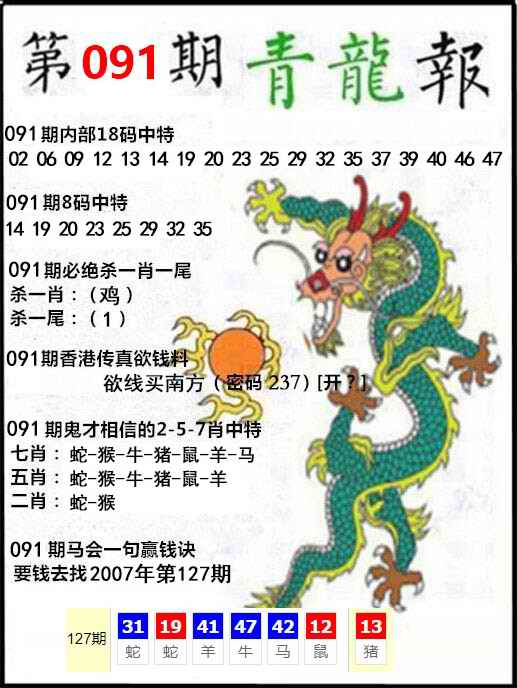 第091期青龍報
091期内部18码中特
02 06 09 12 13 14 19 20 23 25 29 32 35 37 39 40 46 47
091期8码中特
14 19 20 23 25 29 32 35
091期必绝杀一肖一尾
杀一肖：（鸡）
杀一尾：（1）
091期香港传真欲钱料
欲线买南方（密码237）[开？]
091期鬼才相信的2-5-7肖中特
七肖：蛇-猴-牛-猪-鼠-羊-马
五肖：蛇-猴-牛-猪-鼠-羊
二肖：蛇-猴
091期马会一句赢钱诀
要钱去找2007年第127期
127期 31 19 41 47 42 12 13
蛇 蛇 羊 牛 马 鼠 猪